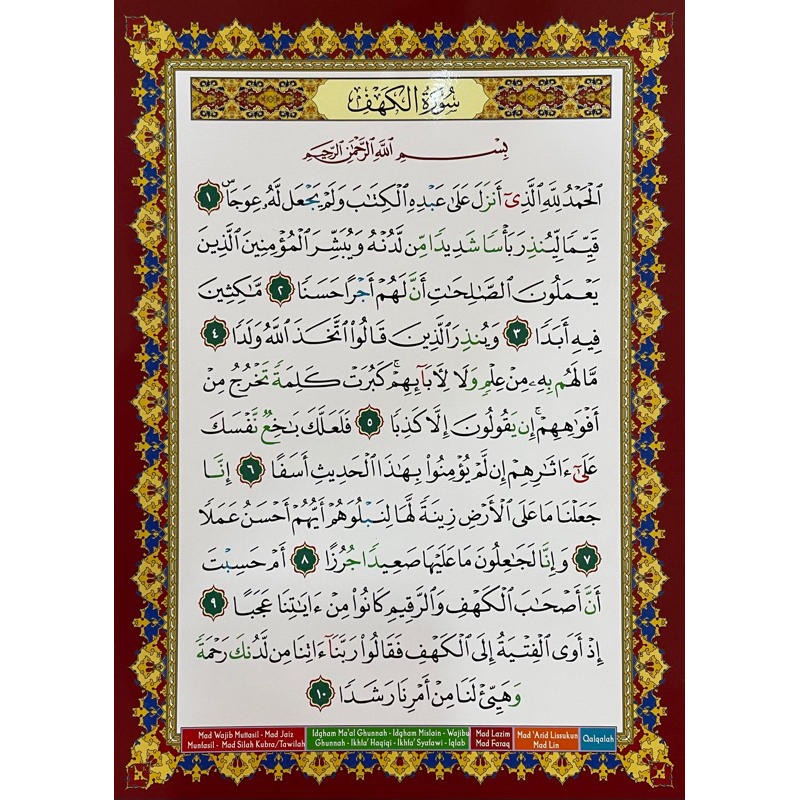 سُورَةُ الكَهْفِ
بِسْمِ اللَّهِ الرَّحْمَٰنِ الرَّحِيمِ
الْحَمْدُ لِلَّهِ الَّذِىٓ أَنزَلَ عَلَىٰ عَبْدِهِ الْكِتَٰبَ وَلَمْ يَجْعَل لَّهُۥ عِوَجَاۜ ١
قَيِّمًا لِّيُنذِرَ بَأْسًا شَدِيدًا مِّن لَّدُنْهُ وَيُبَشِّرَ الْمُؤْمِنِينَ الَّذِينَ
يَعْمَلُونَ الصَّٰلِحَٰتِ أَنَّ لَهُمْ أَجْرًا حَسَنًا ٢ مَّٰكِثِينَ
فِيهِ أَبَدًا ٣ وَيُنذِرَ الَّذِينَ قَالُوا۟ اتَّخَذَ اللَّهُ وَلَدًا ٤
مَّا لَهُم بِهِۦ مِنْ عِلْمٍ وَلَا لِءَابَآئِهِمْ ۚ كَبُرَتْ كَلِمَةً تَخْرُجُ مِنْ
أَفْوَٰهِهِمْ ۚ إِن يَقُولُونَ إِلَّا كَذِبًا ٥ فَلَعَلَّكَ بَٰخِعٌ نَّفْسَكَ
عَلَىٰٓ ءَاثَٰرِهِمْ إِن لَّمْ يُؤْمِنُوا۟ بِهَٰذَا الْحَدِيثِ أَسَفًا ٦ إِنَّا
جَعَلْنَا مَا عَلَى الْأَرْضِ زِينَةً لَّهَا لِنَبْلُوَهُمْ أَيُّهُمْ أَحْسَنُ عَمَلًا
٧ وَإِنَّا لَجَٰعِلُونَ مَا عَلَيْهَا صَعِيدًا جُرُزًا ٨ أَمْ حَسِبْتَ
أَنَّ أَصْحَٰبَ الْكَهْفِ وَالرَّقِيمِ كَانُوا۟ مِنْ ءَايَٰتِنَا عَجَبًا ٩
إِذْ أَوَى الْفِتْيَةُ إِلَى الْكَهْفِ فَقَالُوا۟ رَبَّنَآ ءَاتِنَا مِن لَّدُنكَ رَحْمَةً
وَهَيِّئْ لَنَا مِنْ أَمْرِنَا رَشَدًا ١٠
Mad Wajib Muttasil - Mad Jaiz
Munfasil - Mad Silah Kubra/Tawilah
Idgham Ma'al Ghunnah - Idgham Mislain - Wajibu
Ghunnah - Ikhfa' Haqiqi - Ikhfa' Syafawi - Iqlab
Mad Lazim
Mad Faraq
Mad 'Arid Lissukun
Mad Lin
Qalqalah